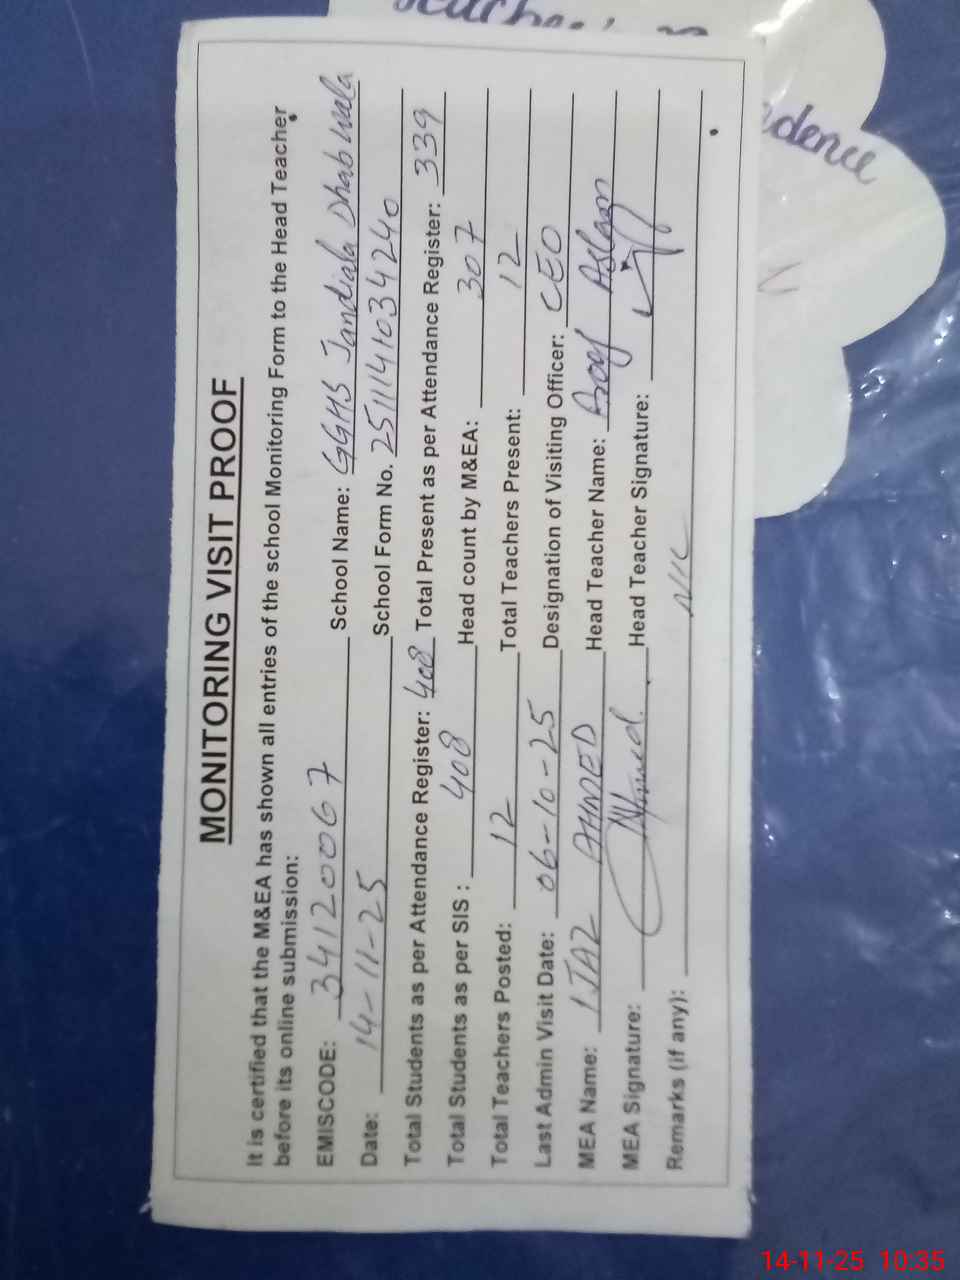 MONITORING VISIT PROOF
It is certified that the M&EA has shown all entries of the school Monitoring Form to the Head Teacher
before its online submission:
EMISCODE: 34120067 School Name: GGHS Jandiala Dhabwala
Date: 14-11-25 School Form No. 2511141034240
Total Students as per Attendance Register: 408 Total Present as per Attendance Register: 339
Total Students as per SIS : 408 Head count by M&EA: 307
Total Teachers Posted: 12 Total Teachers Present: 12
Last Admin Visit Date: 06-10-25 Designation of Visiting Officer: CEO
MEA Name: IJAZ AHMED Head Teacher Name: Aslam
MEA Signature: Ahmed Head Teacher Signature:
Remarks (if any): Nil
dence
14-11-25 10:35